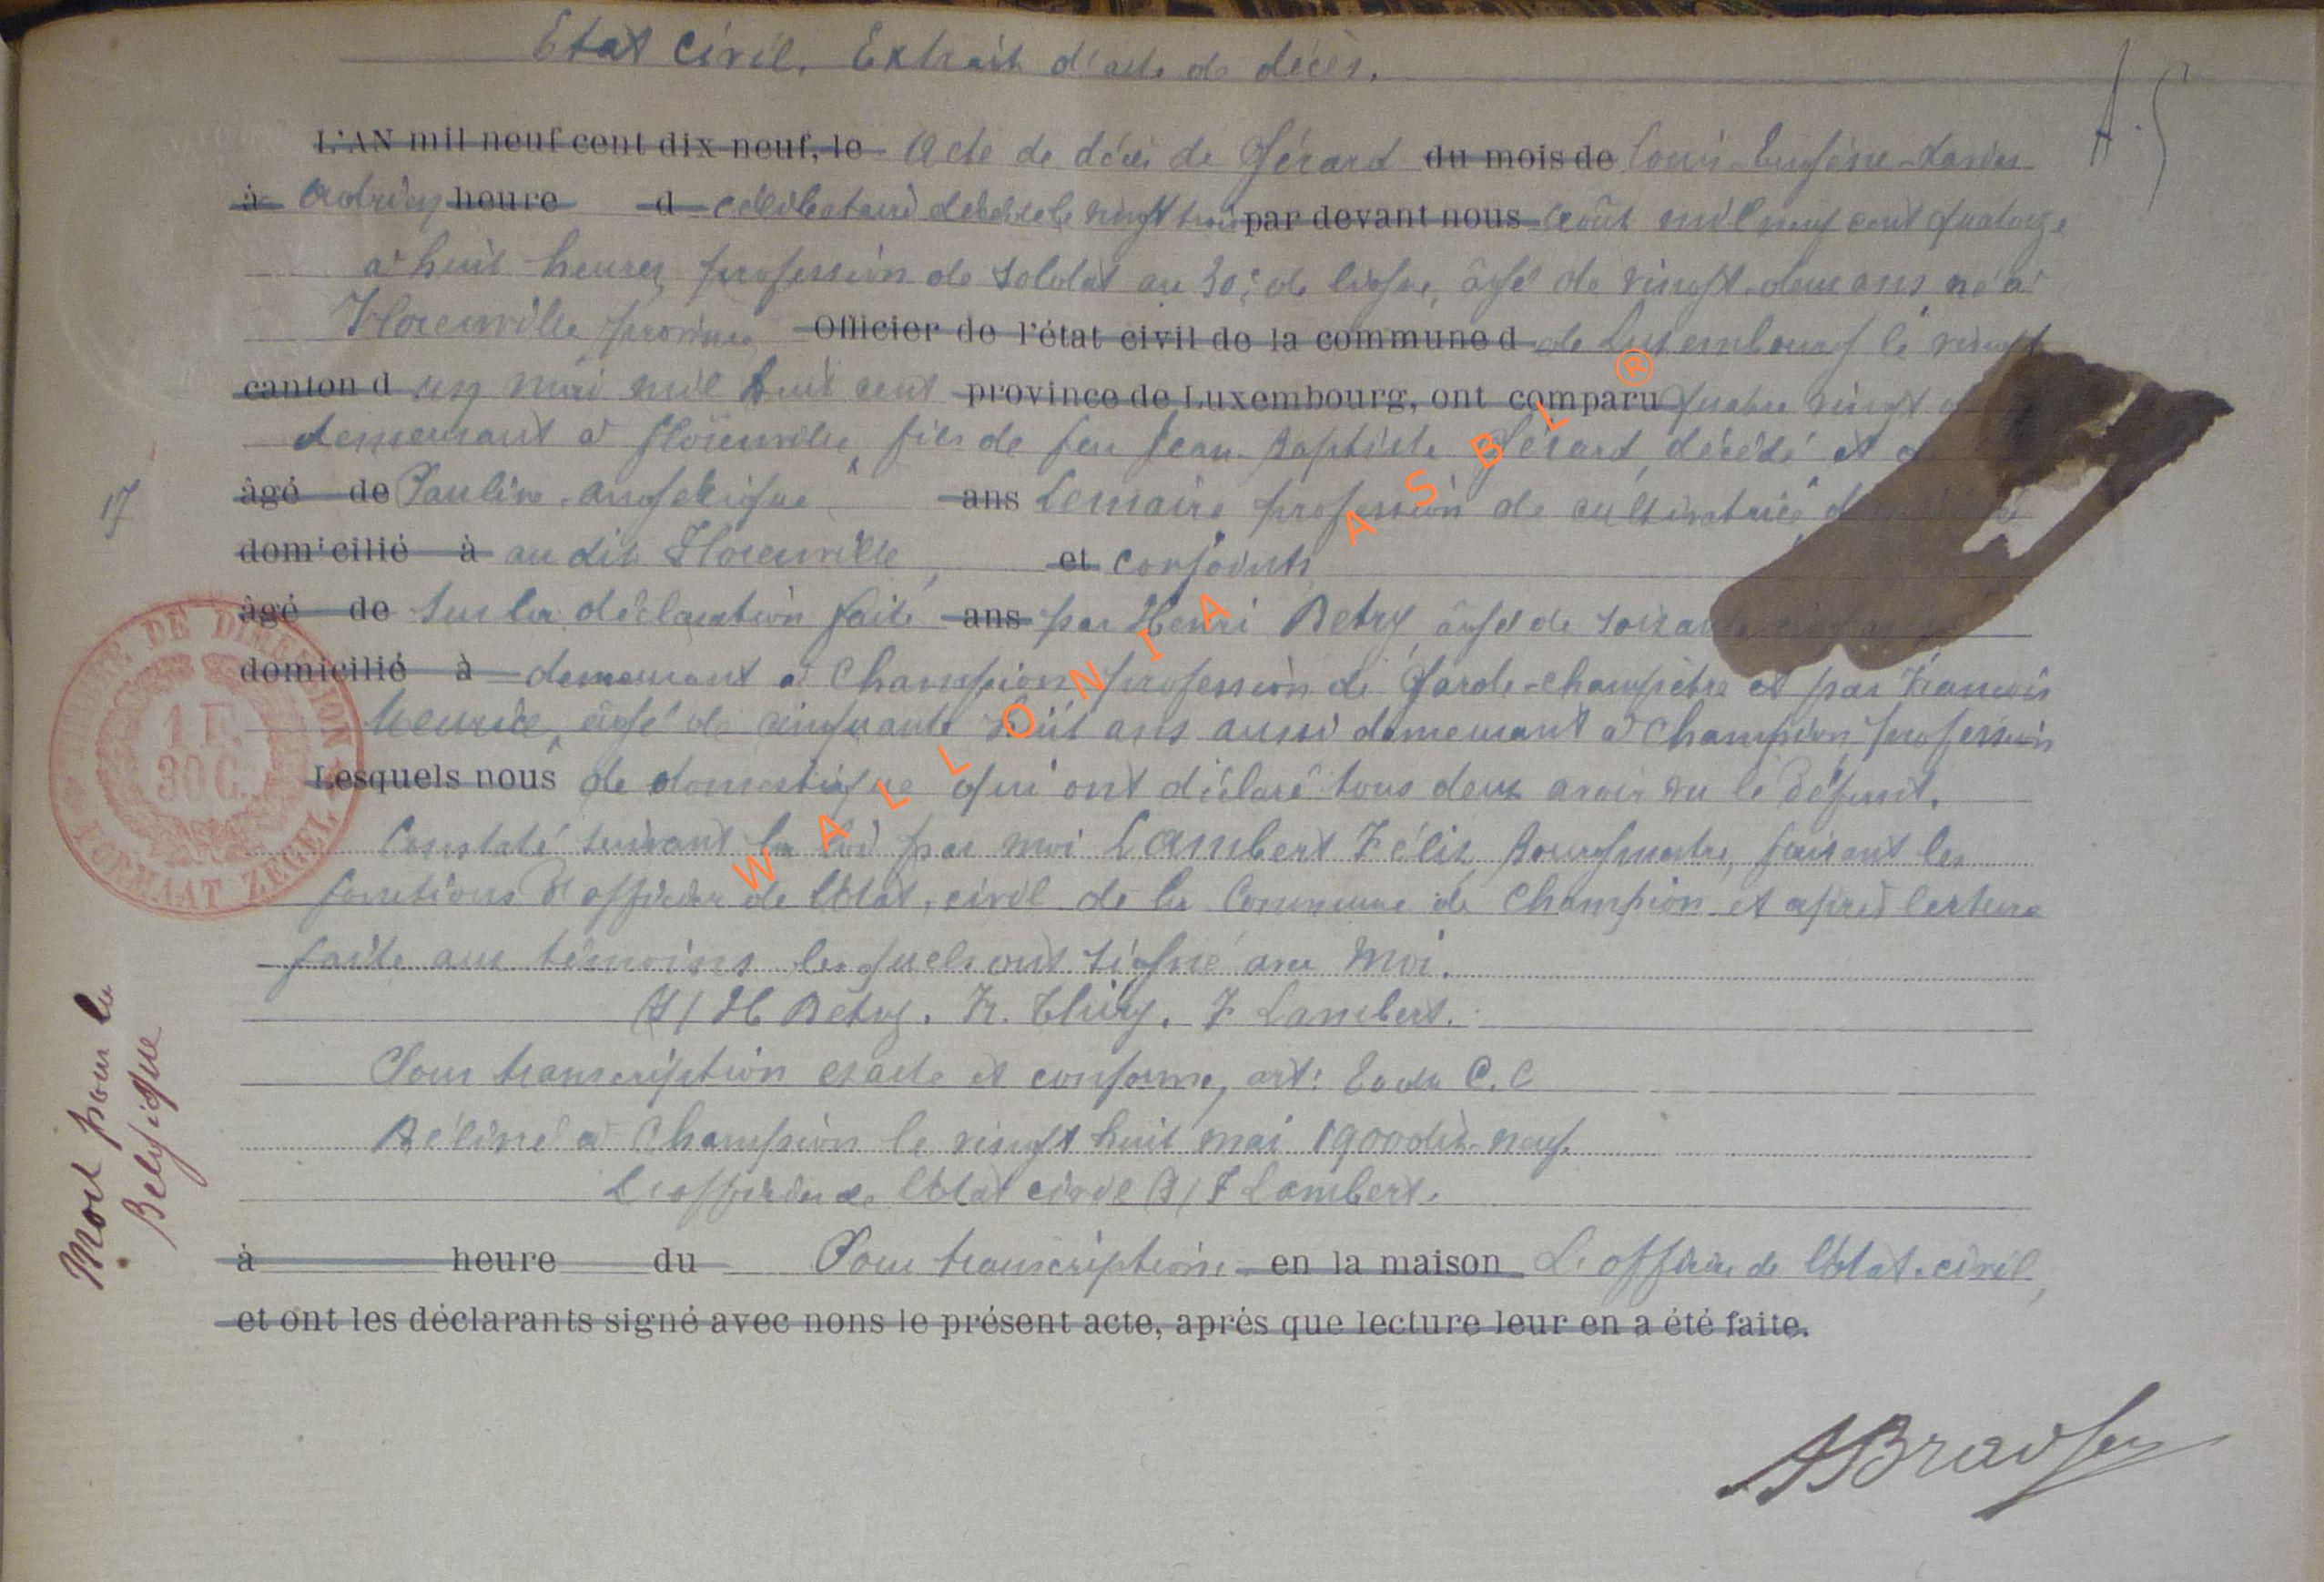 Etat civil. Extrait d'acte de décès.
A. S
L'AN mil neuf cent dix-neuf, le Acte de décès de Gérard du mois de Louis-Eugène-
à Adrien heure d célibataire décédé le vingt trois par devant nous août mil neuf cent quatorze
à huit heures, profession de soldat au 30e de ligne, âgé de vingt-deux ans, né à
Florenville province Officier de l'état civil de la commune d de Luxembourg le vingt
canton d un mai mil huit cent province de Luxembourg, ont comparu quatre vingt
demeurant à Florenville, fils de feu Jean-Baptiste Gérard, décédé et
17
âgé de Pauline-Angélique ans Lemaire profession de cultivatrice
domicilié à au dit Florenville, et conjoints
âgé de Sur la déclaration faite ans par Henri Betry âgé de soixante
domicilié à demeurant à Champion profession de garde-champêtre et par François
âgé de cinquante huit ans aussi demeurant à Champion, profession
Lesquels nous de domestique qui ont déclaré tous deux avoir vu le défunt.
Constaté suivant la loi par moi Lambert Félix, Bourgmestre, faisant les
fonctions d'officier de l'état-civil de la Commune de Champion et après lecture
faite aux témoins lesquels ont signé avec moi.
(s) H Betry. Fr. Thiry. F Lambert.
Pour transcription exacte et conforme, art: C.C
Délivré à Champion le vingt huit mai 1900 dix-neuf.
L'officier de l'état civil (s) F Lambert.
à heure du Pour transcription. en la maison L'officier de l'état-civil,
et ont les déclarants signé avec nous le présent acte, après que lecture leur en a été faite.
Mort pour la
Belgique
TIMBRE DE DIMENSION
1 F.
30 C.
FORMAAT ZEGEL
WALLONIA ASBL ®